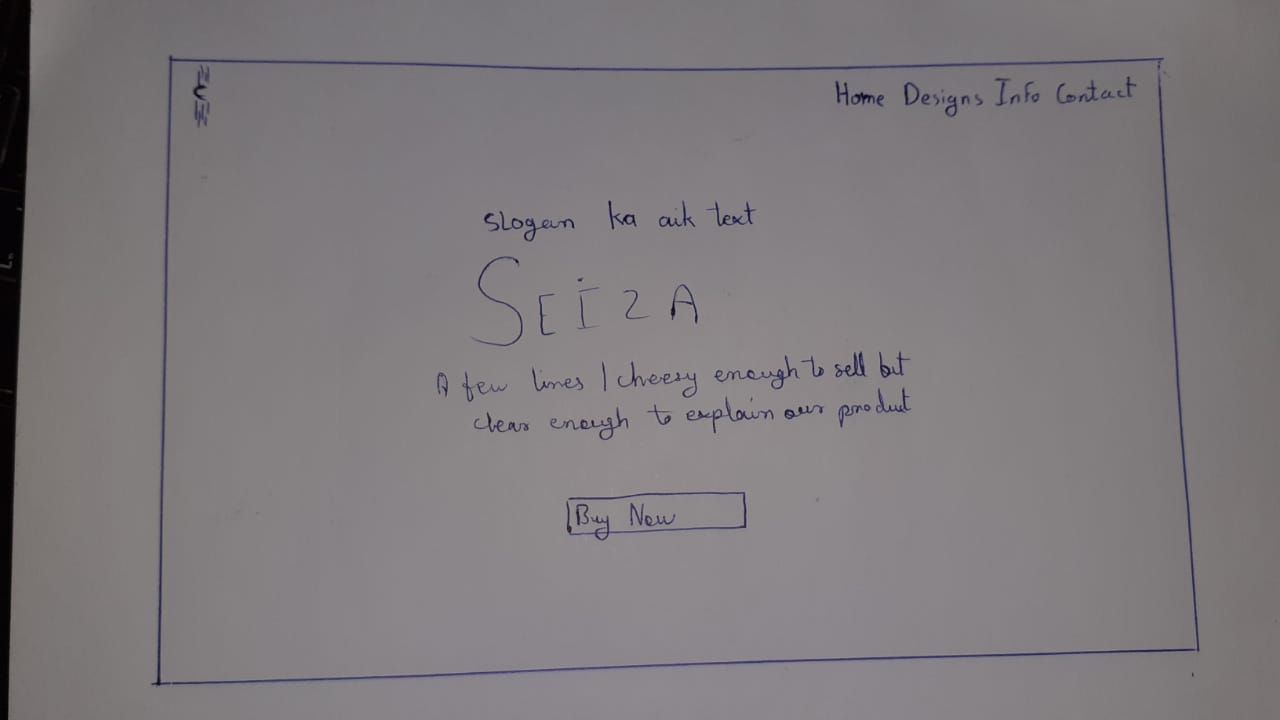 Home Designs Info Contact
Slogan ka aik text
SEIZA
A few lines / cheesy enough to sell but
clear enough to explain our product
Buy Now